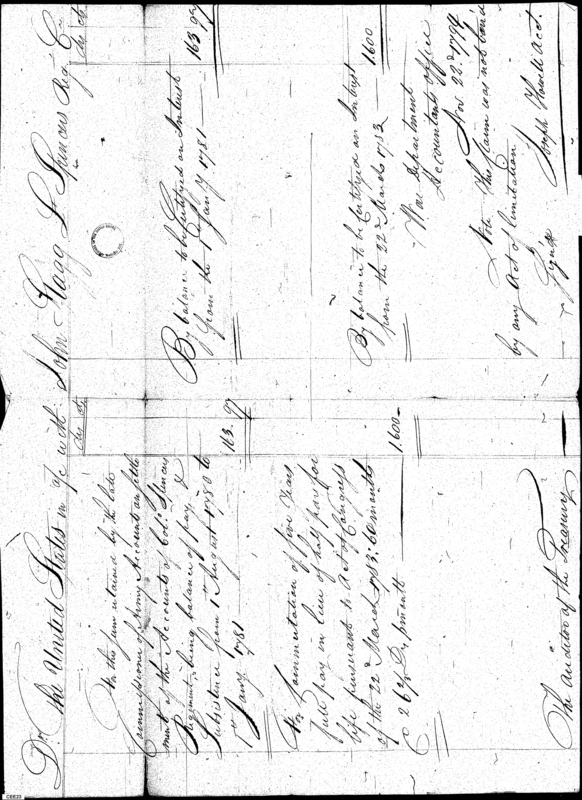 Dr. The United States in a/c with John Stagg Lt Spencers Reg. Cr.
ds cts
To this sum retained by the late
Commissioner of Army Accounts on settle
ment of the Accounts of Col. Spencers
Regiment, being balance of pay &
Subsistence from 1st August 1780 to
1st Jany 1781 — 163.97
To Commutation of five Years
full pay in lieu of half pay for
life pursuant to Act of Congress
of the 22d March 1783. 60 months
@ 26 2/3 Ds p month — 1.600 —
The Auditor of the Treasury
ds cts
By balance to be Certified on Intrest
from the 1st Jany 1781 — 163.97
By balance to be Certified on Intrst
from the 22d March 1783 — 1600
War Department
Accountants office
Nov. 22d 1794
Note. This Claim was not barrd
by any Act of limitation
Sign'd
Joseph Howell Acct.